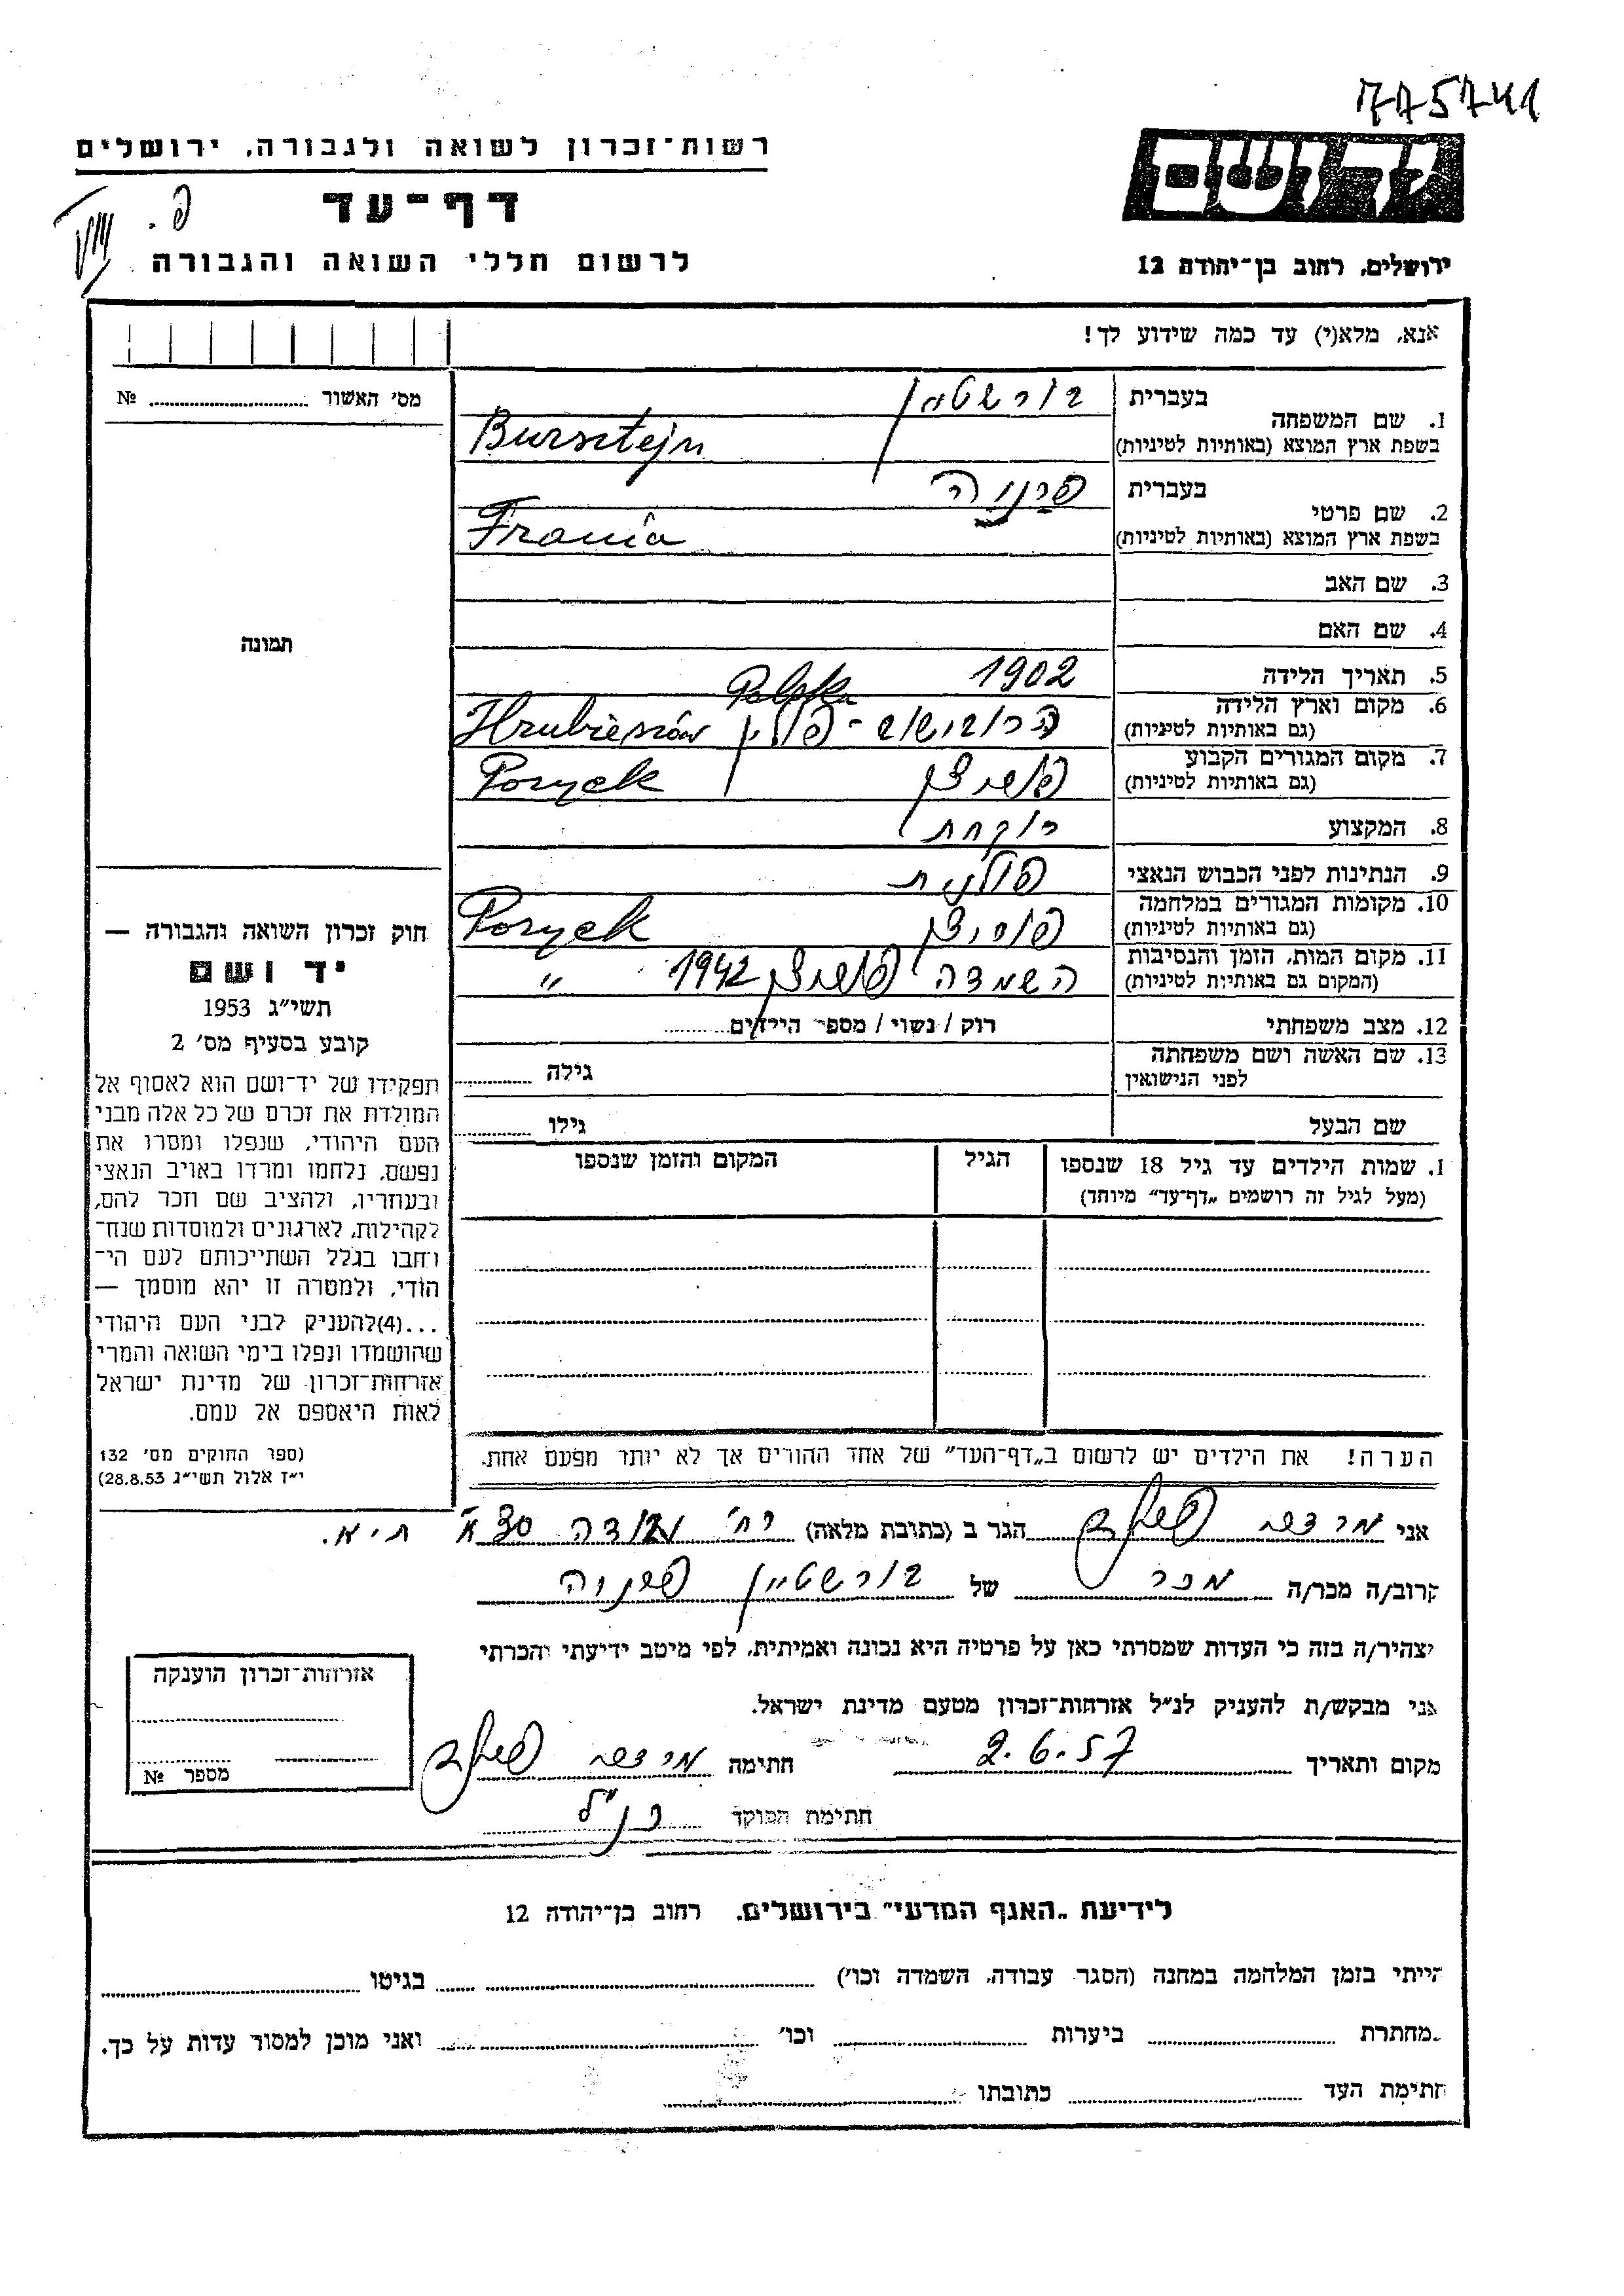 775741
רשות־זכרון לשואה ולגבורה, ירושלים
דף־עד
לרשום חללי השואה והגבורה
פ.
יד ושם
ירושלים, רחוב בן־יהודה 12
אנא, מלא(י) עד כמה שידוע לך!
מס׳ האשור № 
1. שם המשפחה
בעברית בורשטיין
בשפת ארץ המוצא (באותיות לטיניות) Bursztejn
2. שם פרטי
בעברית פרניה
בשפת ארץ המוצא (באותיות לטיניות) Frania
3. שם האב
4. שם האם
5. תאריך הלידה 1902
6. מקום וארץ הלידה
(גם באותיות לטיניות) הרובישוב - פולין Hrubieszów Polska
7. מקום המגורים הקבוע
(גם באותיות לטיניות) Poryck
8. המקצוע רוקחת
9. הנתינות לפני הכבוש הנאצי פולנית
10. מקומות המגורים במלחמה
(גם באותיות לטיניות) פוריצק Poryck
11. מקום המות, הזמן והנסיבות
(המקום גם באותיות לטיניות) השמדה פוריצק 1942 "
12. מצב משפחתי רוק / נשוי / מספר הילדים
13. שם האשה ושם משפחתה
לפני הנישואין גילה
שם הבעל גילו
תמונה
חוק זכרון השואה והגבורה —
יד ושם
תשי״ג 1953
קובע בסעיף מס׳ 2
תפקידו של יד־ושם הוא לאסוף אל
המולדת את זכרם של כל אלה מבני
העם היהודי, שנפלו ומסרו את
נפשם, נלחמו ומרדו באויב הנאצי
ובעוזריו, ולהציב שם וזכר להם,
לקהילות, לארגונים ולמוסדות שנח־
רבו בגלל השתייכותם לעם הי־
הודי, ולמטרה זו יהא מוסמך —
...(4) להעניק לבני העם היהודי
שהושמדו ונפלו בימי השואה והמרי
אזרחות־זכרון של מדינת ישראל
לאות היאספם אל עמם.
(ספר החוקים מס׳ 132
י״ז אלול תשי״ג 28.8.53)
1. שמות הילדים עד גיל 18 שנספו
(מעל לגיל זה רושמים „דף־עד” מיוחד)
הגיל
המקום והזמן שנספו
הערה! את הילדים יש לרשום ב„דף־העד” של אחד ההורים אך לא יותר מפעם אחת.
אני הגר ב (כתובת מלאה) רח׳ 30א ת״א.
קרוב/ה מכר/ה מכר של בורשטיין פרניה
מצהיר/ה בזה כי העדות שמסרתי כאן על פרטיה היא נכונה ואמיתית, לפי מיטב ידיעתי והכרתי
אני מבקש/ת להעניק לנ״ל אזרחות־זכרון מטעם מדינת ישראל.
מקום ותאריך 2.6.57 חתימה
חתימת הפוקד כנ״ל
אזרחות־זכרון הוענקה
מספר №
לידיעת „האגף המדעי” בירושלים, רחוב בן־יהודה 12
הייתי בזמן המלחמה במחנה (הסגר עבודה, השמדה וכו׳) בגיטו
במחתרת ביערות וכו׳ ואני מוכן למסור עדות על כך.
חתימת העד כתובתו